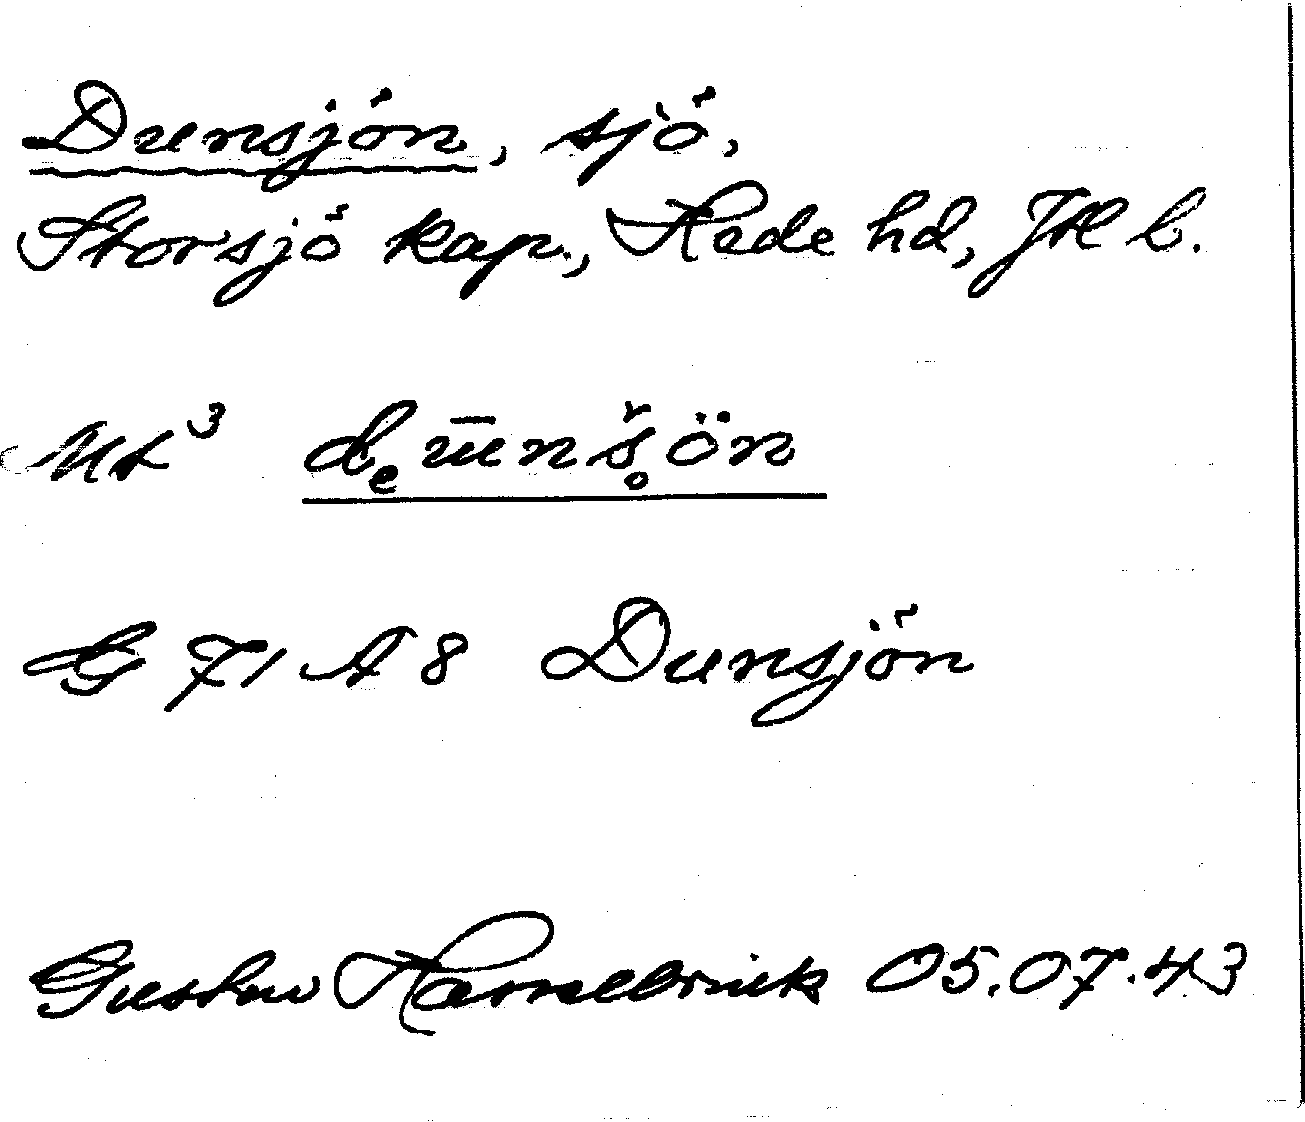 Dunsjön, sjö,
Storsjö kap., Hede hd, Jtl l.
Ut³ dₑūnš̥ön
G 71 A 8 Dunsjön
Gustav Hasselbrink 05.07.43